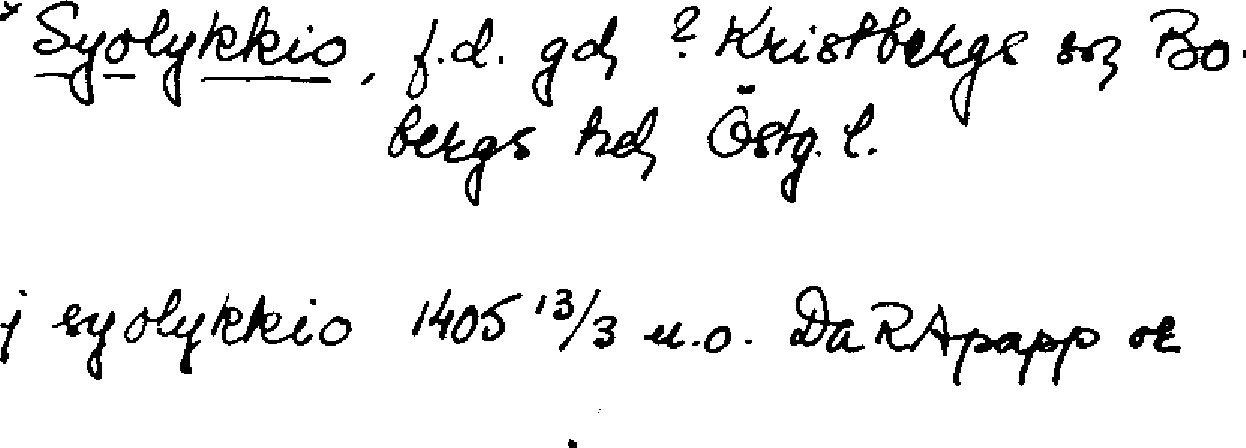 *Syolykkio, f.d. gd, ? Kristbergs sn, Bo-
bergs hd, Östg. l.
j syolykkio 1405 13/3 u.o. Da RApapp or